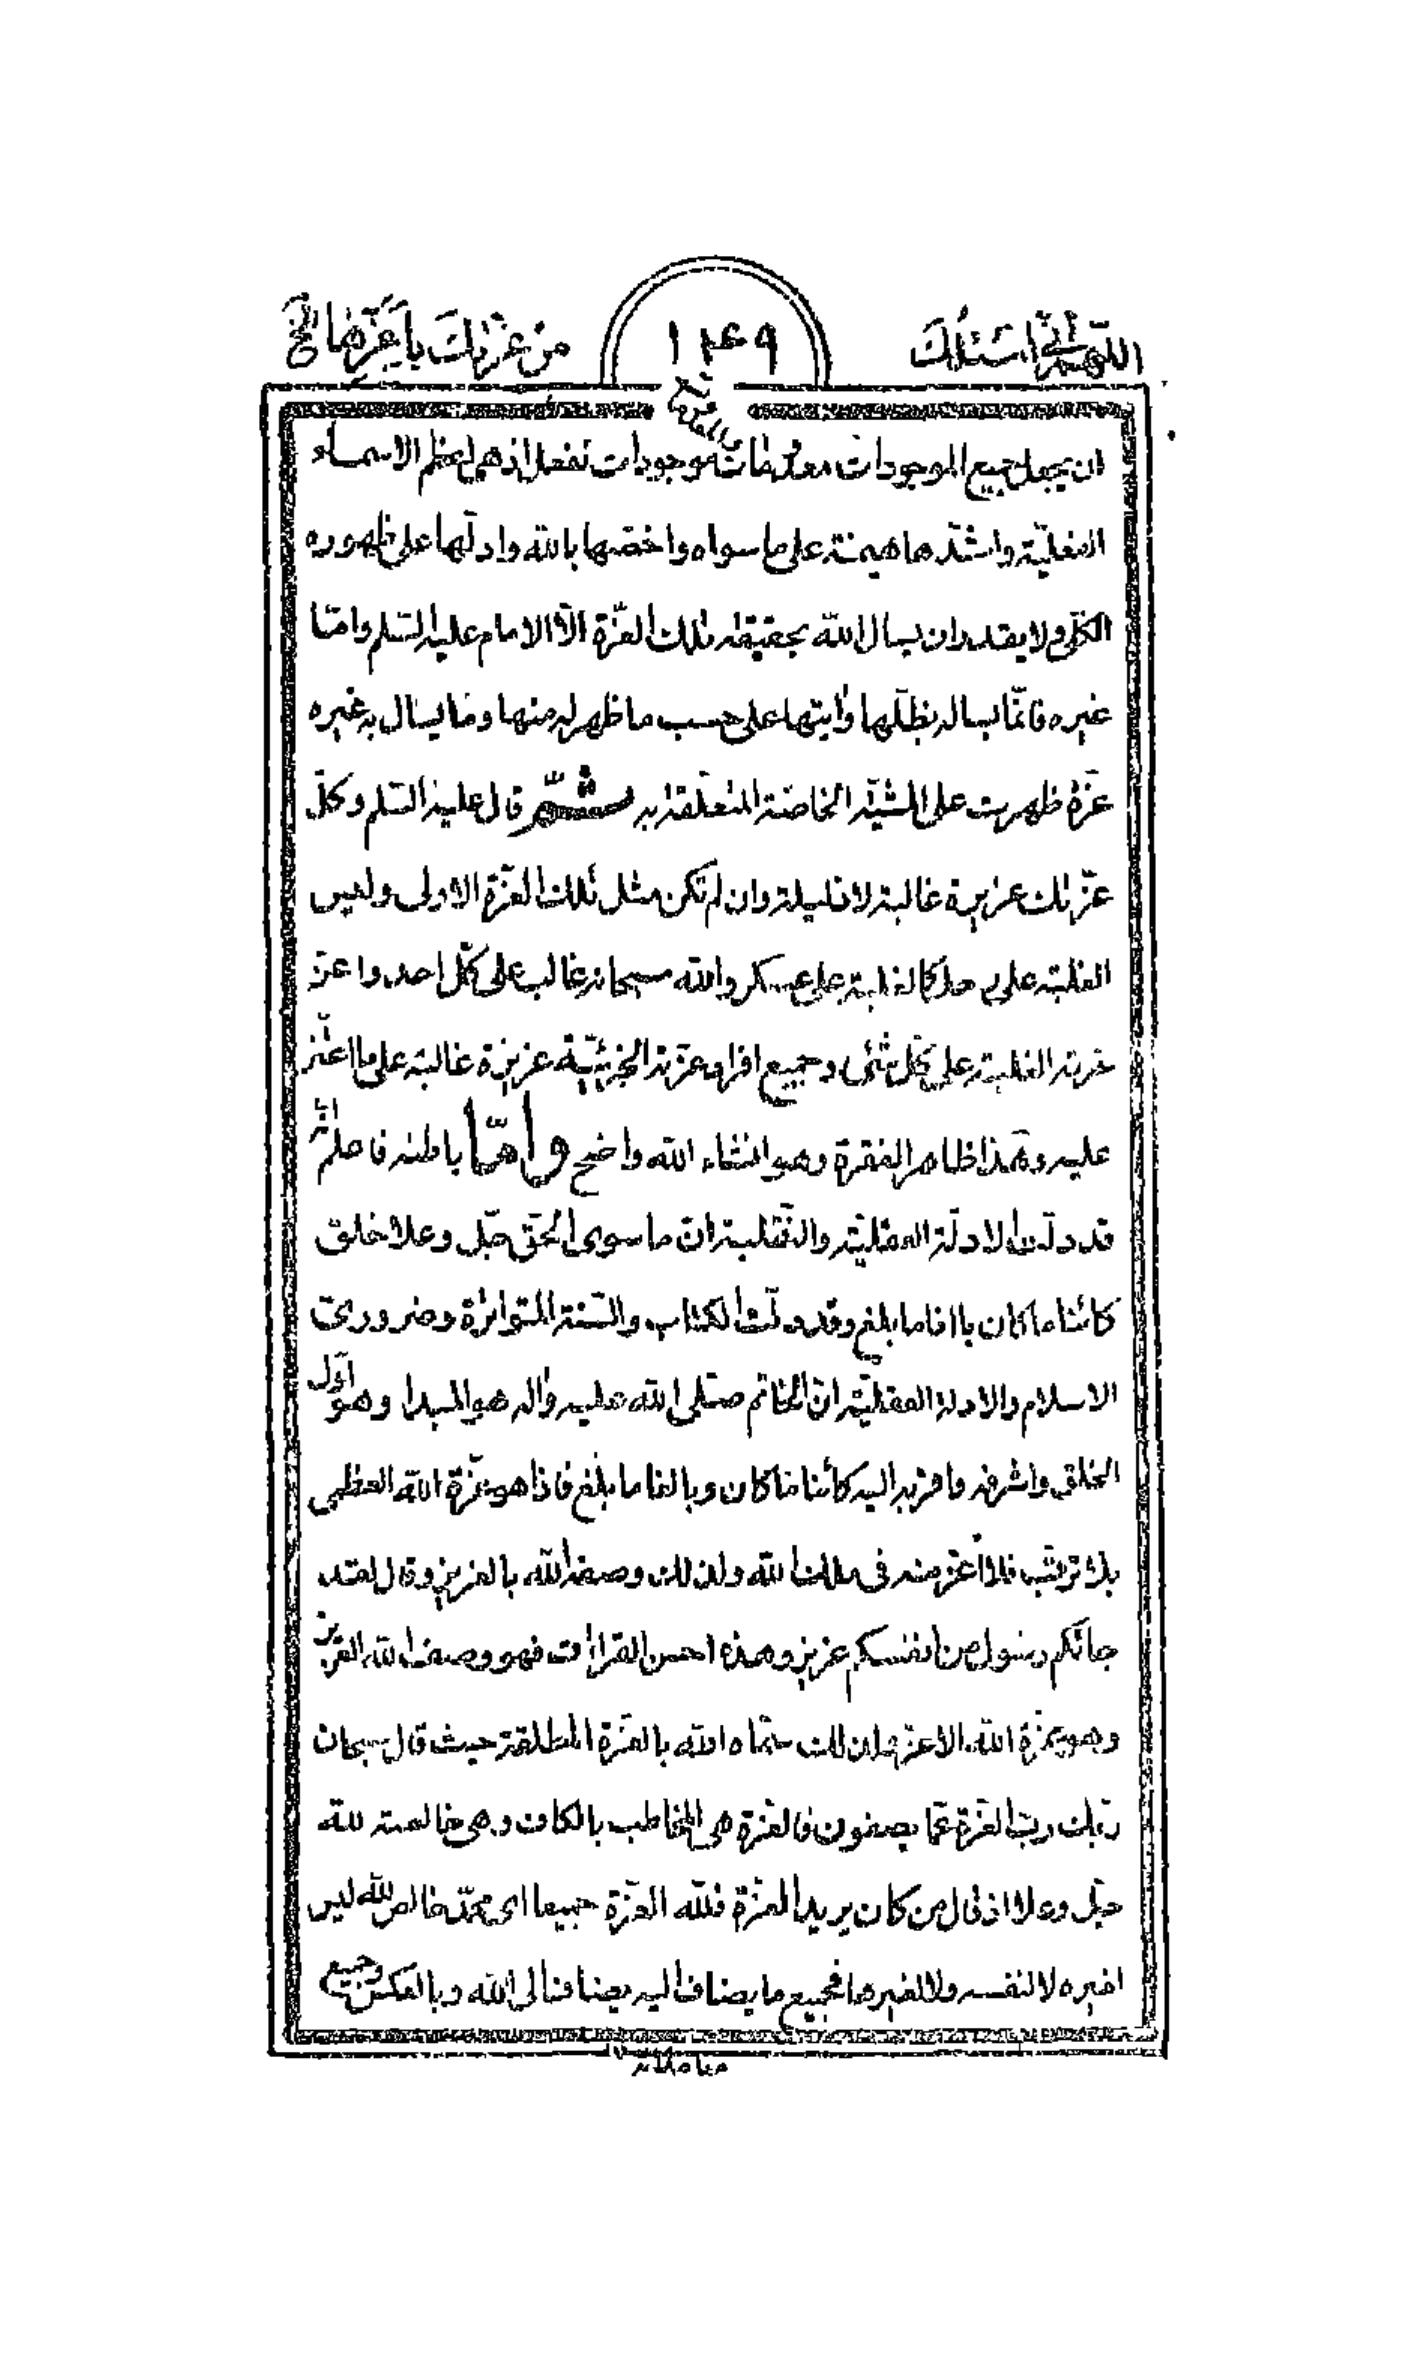 اللّهمّ انّى اسئلك ١١٤٩ من عزّتك باعزّها الخ
ان يجعل جميع الموجودات معدومات والمعدومات موجودات تفعل اذ هى اعظم الاسماء
الفعليّة واشدّها هيمنة على ما سواه واخصّها بالله وادلّها على ظهوره
الكلّى ولا يقدر ان يسال الله بحقيقة تلك العزّة الّا الامام عليه السّلم وامّا
غيره فانّما يساله بظلّها وايتها على حسب ما ظهر له منها وما يسال به غيره
عزّة ظهرت على المشيّة الخاصّة المتعلّقة به ثمّ قال عليه السّلم وكلّ
عزّتك عزيزة غالبة لا ذليلة وان لم تكن مثل تلك العزّة الاولى وليس
الغلبة على رجل كالغلبة على عسكر والله سبحانه غالب على كلّ احد واعزّ
عزّته الغلبة على كلّ شئ وجميع افراد عزّته الجزئيّة عزيزة غالبة على ما اعتزّ
عليه وهذا ظاهر الفقرة وهو انشاء الله واضح وامّا باطنه فاعلم انّه
قد دلّت الادلّة العقليّة والنّقلية انّ ما سوى الحقّ جلّ وعلا خلق
كائنا ما كان بالغا ما بلغ وقد دلّت الكتاب والسّنة المتواترة وضرورىّ
الاسلام والادلة العقليّة انّ الخاتم صلّى الله عليه واله هو المبدا وهو اوّل
الخلق واشرفه واقربه اليه كائنا ما كان وبالغا ما بلغ فاذا هو عزّة الله العظمى
بلا ترتّب فلا اعزّ منه فى ملك الله ولذلك وصفه الله بالعزيز وقال لقد
جائكم رسول من انفسكم عزيز وهذه احسن القراءات فهو وصف الله العزيز
وهو عزّة الله الاعزّ ولذلك سمّاه الله بالعزّة المطلقة حيث قال سبحان
ربّك ربّ العزّة عمّا يصفون فالعزّة هى المخاطب بالكاف وهى خالصة لله
جلّ وعلا اذ قال من كان يريد العزّة فللّه العزّة جميعا اى محمّد خالص لله ليس
لغيره لا لنفسه ولا لغيرها فجميع ما يضاف اليه يضاف الى الله وبالعكس وجميع